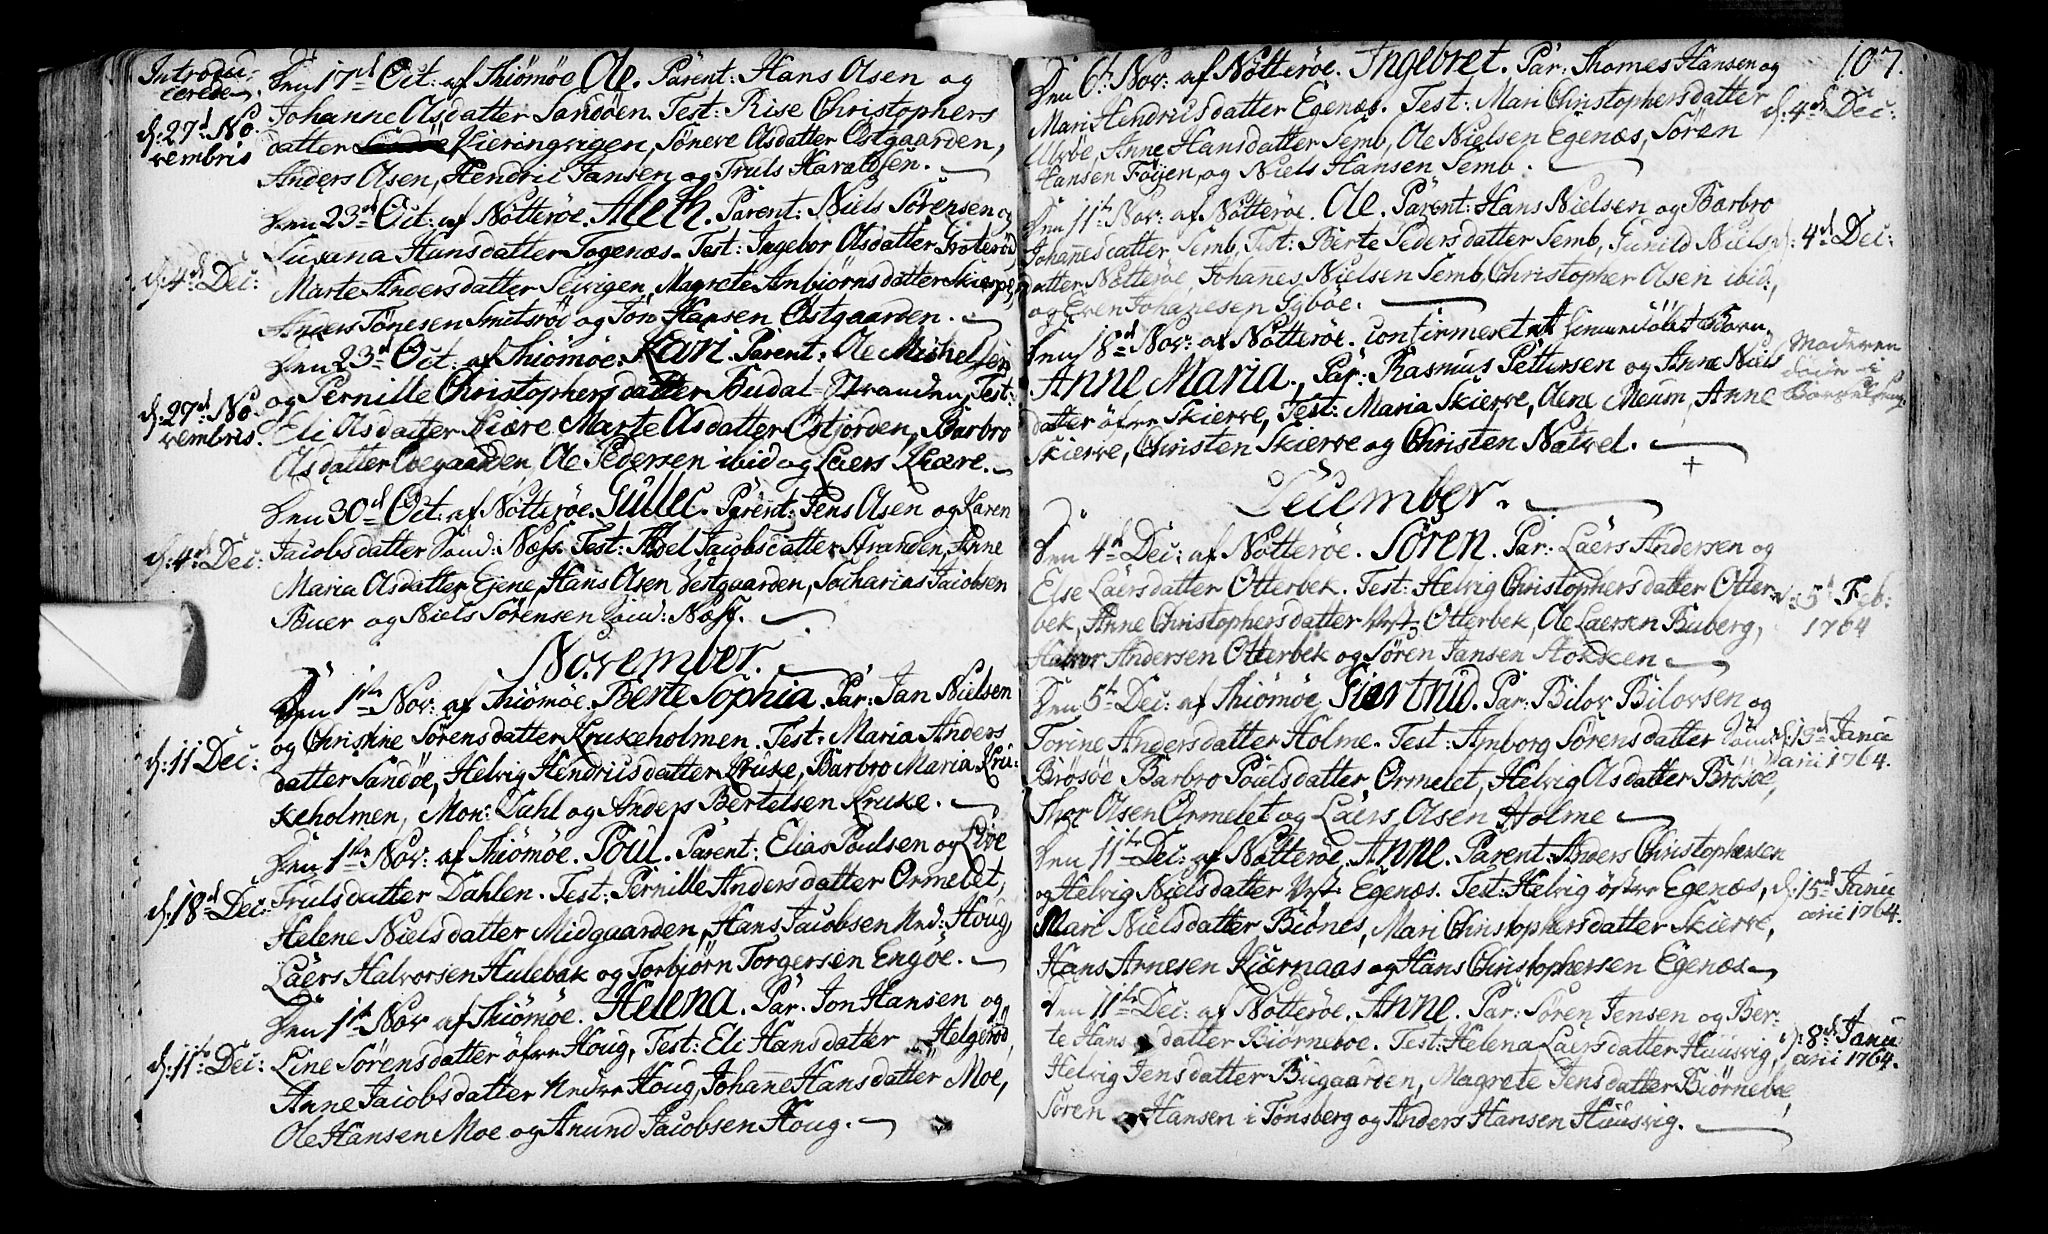 Introdu-
cerede
Den 17d Oct: af Thiömöe Ole. Parent: Hans Olsen og
Johanne Olsdatter Sandöen. Test: Rise Christophers
d. 27d No-
vembris
datter Kieringvigen, Tönere Olsdatter Østgaarden,
Anders Olsen, Hendric Jansen og Truls Haraldsen.
Den 23d Oct: af Nötteröe. Aleth. Parent: Niels Sörensen og
Susana Hansdatter Togenæs. Test: Ingebor Olsdatter Groteröd
d: 4d Dec:
Marte Andersdatter Seivigen, Magrete Anbiörnsdatter Skierpe,
Anders Tönesen Smitsröd og Jörn Hansen Østgaarden.
Den 23d Oct: af Thiömöe. Kari. Parent: Ole Michelsen
og Pernille Christophersdatter Budal-Stranden, Test:
d. 27d No-
vembris.
Eli Olsdatter Kiære Marte Olsdatter Østjorden, Barbro
Olsdatter Oevgaarden, Ole Pedersen ibid og Laers Kiære.
Den 30d Oct: af Nötteröe. Gullec. Parent: Jens Olsen og Karen
d: 4d Dec:
Jacobsdatter Sönd: Næss. Test: Abel Jacobsdatter Stranden, Anne
Maria Olsdatter Ejene, Hans Olsen Vestgaarden, Sacharias Jacobsen
Buer og Niels Sörensen Sönd: Næss.
November.
Den 1ste Nov: af Thiömöe. Berte Sophia. Par: Jan Nielsen
og Christine Sörensdatter Krukeholmen. Test: Maria Anders
d: 11 Dec:
datter Sandöe, Helvig Hendricsdatter Kruke, Barbro Maria Kru-
keholmen, Mon: Dahl og Anders Bertelsen Kruke.
Den 1ste Nov: af Thiömöe. Poul. Parent: Elias Poulsen og Live
d. 18d Dec:
Trulsdatter Dahlen. Test: Pernille Andersdatter Ormelet,
Helene Nielsdatter Midgaarden, Hans Jacobsen Ned: Houg,
Laers Halvorsen Hulebak og Torbjörn Torgersen Engöe.
Den 1ste Nov af Thiömöe. Helena. Par: Jon Hansen og
d: 11te Dec:
Line Sörensdatter öfre Houg, Test: Eli Hansdatter Helgeröd
Anne Jacobsdatter Nedre Houg, Johanne Hansdatter Moe,
Ole Hansen Moe og Anund Jacobsen Houg.
107.
Den 6te Nov: af Nötteröe. Ingebret. Par: Thomes Hansen og
Mari Hendricsdatter Egenæs. Test: Mari Christophersdatter
d: 4d Dec:
Ulvöe, Anne Hansdatter Semb, Ole Nielsen Egenæs, Sören
Hansen Föyen, og Niels Hansen Semb.
Den 11te Nov: af Nötteröe. Ole. Parent: Hans Nielsen og Barbro
Johannesdatter Semb, Test: Berte Pedersdatter Semb, Gunild Niels
d: 4d Dec:
datter Nötteröe, Johannes Nielsen Semb, Christopher Olsen ibid:,
og Even Johannesen Gyböe.
Den 18d Nov: af Nötteröe. confirmeret et hiemmedöbt Barn,
Anne Maria. Par: Rasmus Pettersen og Anne Niels
Moderen
döde i
Barselseng
datter öfre Skierve, Test: Maria Skierve, Olene Meum, Anne
Skierve, Christen Skierve og Christen Natvel.
December.
Den 4d Dec: af Nötteröe. Sören. Par: Laers Andersen og
Else Laersdatter Otterbek. Test: Helvig Christophersdatter Otter-
d: 5d Feb:
1764
bek, Anne Christophersdatter Vest: Otterbek, Ole Laersen Buberg,
Halvor Andersen Otterbek og Sören Jansen Stokken
Den 5te Dec: af Thiömöe Giertrud. Par: Bilov Bilovsen og
Torine Andersdatter Holme. Test: Anborg Sörensdatter Sönd:
d: 19d Janu
arii 1764.
Brösöe Barbro Poulsdatter Ormelet, Helvig Olsdatter Brösöe,
Thor Olsen Ormelet og Laers Olsen Holme
Den 11te Dec: af Nötteröe. Anne. Parent: Anders Christophersen
og Helvig Nielsdatter Vest: Egenæs. Test: Helvig östre Egenæs,
d. 15d Janu
arii 1764.
Mari Nielsdatter Biönes, Mari Christophersdatter Skierve,
Hans Arnesen Kiærnaas og Hans Christophersen Egenæs
Den 11te Dec: af Nötteröe. Anne. Par: Sören Jensen og Ber-
te Hansdatter Biörneboe. Test: Helena Laersdatter Huusvig,
d: 8d Janu
arii 1764.
Helvig Jensdatter Bugaarden, Magrete Jensdatter Biörneboe,
Sören Hansen i Tønsberg og Anders Hansen Huusvig.